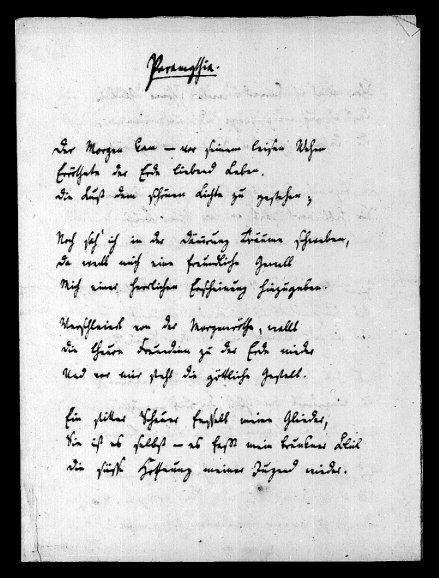 Paramythie.
Der Morgen kam — vor seinem leisen Wehn
Erröthete der Erde liebend Leben.
Die Lust dem schönen Lichte zu gestehen;
Noch sah' ich in der Träume schweben,
Da weckt mich eine freundliche Gewalt
Mich einer herrlichen Erscheinung hinzugeben.
Verschleiert von der Morgenröthe, wallt
Die theure Freundinn zu der Erde nieder
Und vor mir steht die göttliche Gestalt.
Ein stiller Schauer fesselt meine Glieder,
Sie ist es selbst — es faßt mein trunkner Blick
Die süße Hoffnung meiner Jugend wieder.